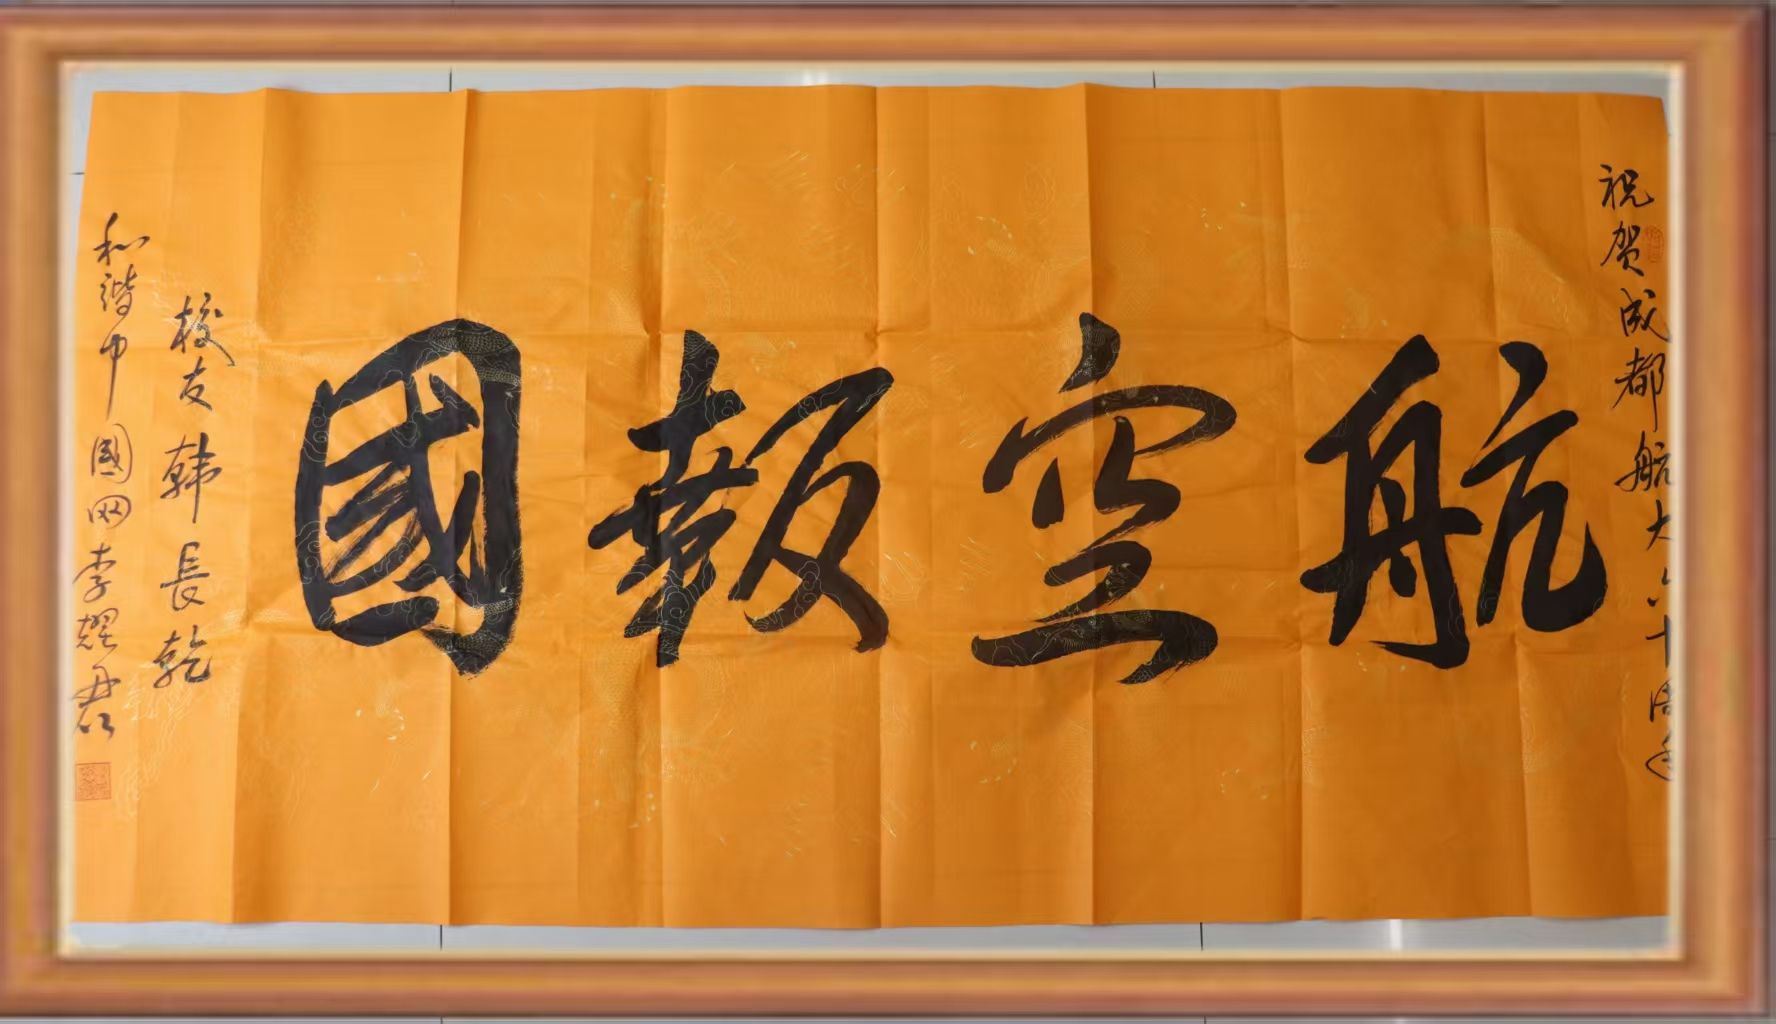 祝贺成都航大六十周年
航空報國
校友韩長乾
和谐中國网李耀君